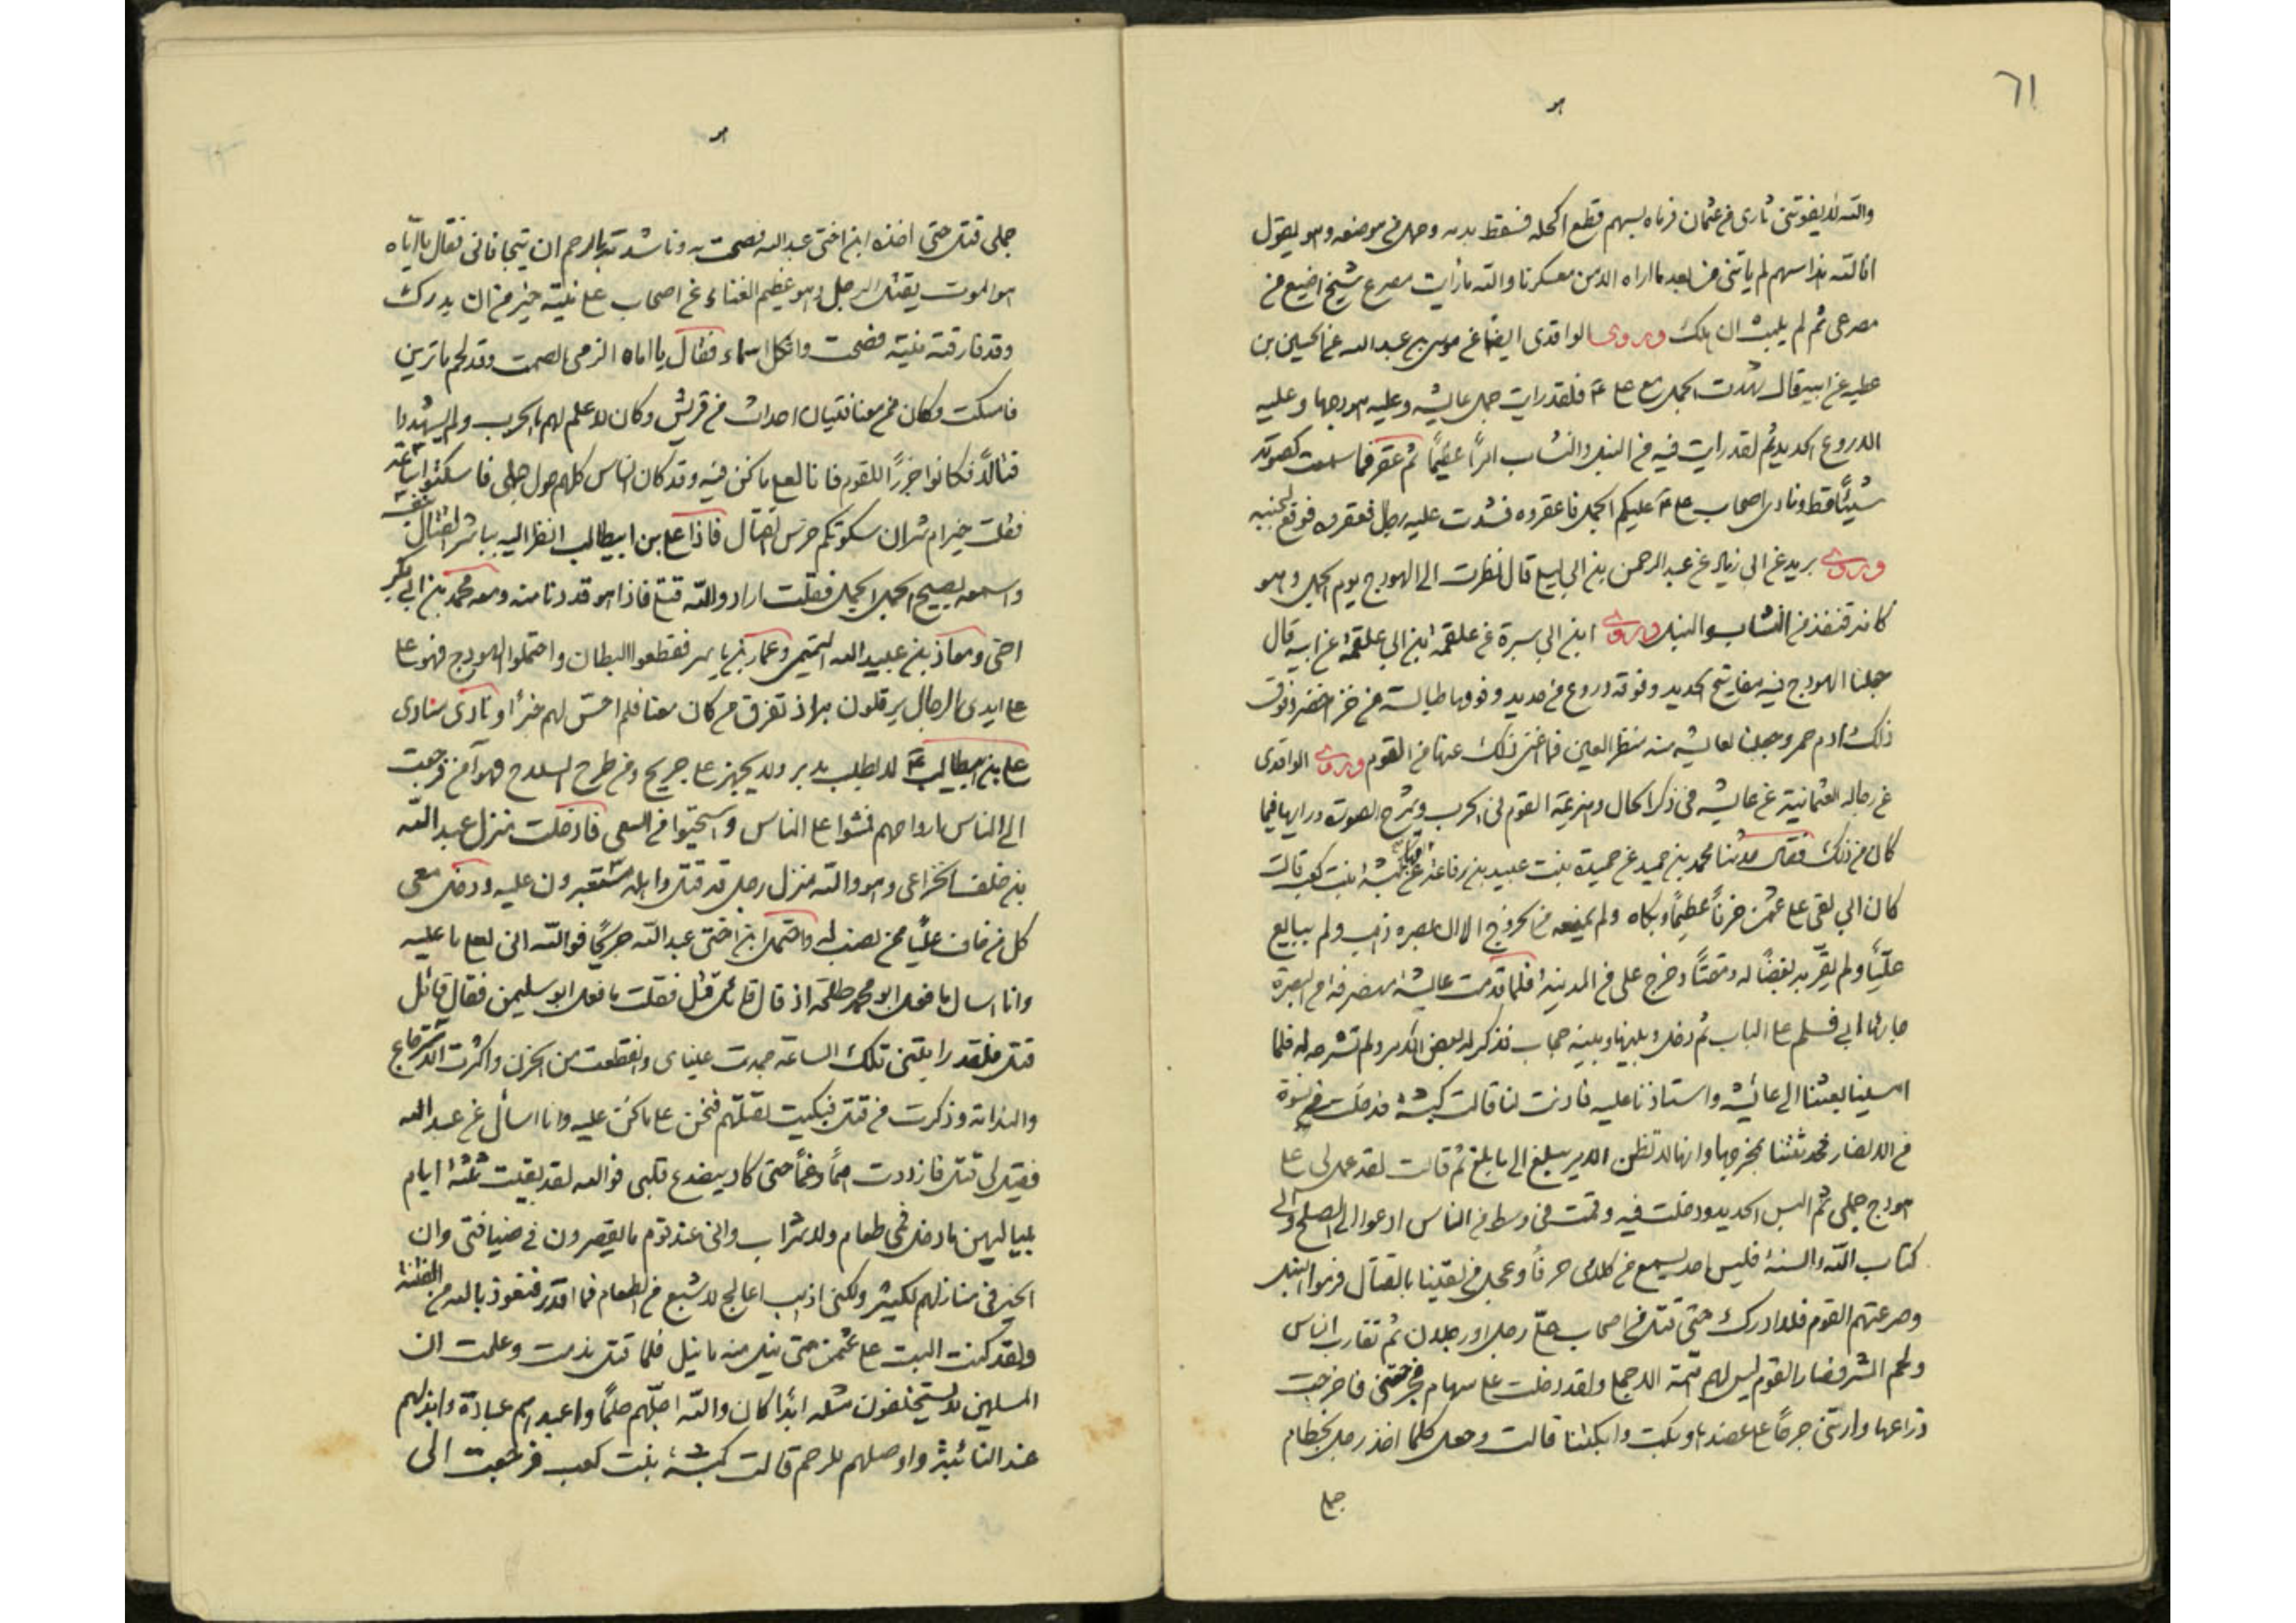 ٦١
هو
والله لا يفوتني ثاري من عثمان فرماه بسهم قطع اكحله فسقط بدمه وحمل في موضعه وهو يقول
انا لله هذا سهم لم ياتني من بعد ما اراه الا من معسكرنا والله ما رأيت مصرع شيخ اضيع من
مصرعي ثم لم يلبث ان هلك وروى الواقدي ايضًا عن موسى بن عبد الله عن الحسين بن
عطيه عن ابيه قال شهدت الجمل مع علي ع فلقد رايت جمل عايشه وعليه هودجها وعليه
الدروع الحديد ثم لقد رايت فيه من النبل والنشاب امرًا عظيمًا ثم عقر فما سمعت كصوته
شيئًا قط ونادى اصحاب علي ع عليكم الجمل فاعقروه فشدت عليه رجال فعقروه فوقع لجنبه
وروى يزيد عن ابي زياد عن عبد الرحمن بن ابي ليلى قال نظرت الى الهودج يوم الجمل وهو
كانه قنفذ من النشاب والنبل وروى ابن ابي سبرة عن علقمه ابن ابي علقمه عن ابيه قال
جعلنا الهودج فيه مفاريح الحديد وفوقه دروع من حديد وفوقها طيالسه من خز اخضر وفوق
ذلك ادم حمر وجعلنا لعايشه منه منظر العين فما اغنى ذلك عنها من القوم وروى الواقدي
عن رجاله العثمانية عن عايشه في ذكر الحال وهزيمة القوم في الحرب وشرح الصوت ورايها فيما
كان من ذلك فقال حدثنا محمد بن حميد عن حميدة بنت عبيد بن رفاعه عن امها كبشه ابنت كعب قالت
كان ابي لقي على عثمن حزنًا عظيمًا وبكاه ولم يمنعه من الخروج الا ان بصره ذهب ولم يبايع
عليًا ولم يقربه بغضًا له ومقتًا وخرج علي من المدينة فلما قدمت عايشه منصرفه من البصرة
جاءها ابي فسلم على الباب ثم دخل وبينها وبينه حجاب فذكر له بعض الامر ولم تشرحه له فلما
امسينا بعثنا الى عائشه واستاذنا عليه فاذنت لنا قالت كبشه فدخلت في نسوة
من الانصار فحدثتنا بمخرجها وانها لا تظن الامر يبلغ الى ما بلغ ثم قالت لقد عمل لي على
هودج جملي ثم البس الحديد ودخلت فيه وقمت في وسط من الناس ادعو الى الصلح والى
كتاب الله والسنة فليس احد يسمع من كلامي حرفًا وعجل من لقينا بالقتال فرموا النبل
وصرعتهم القوم فلا ادرك حتى قتل من اصحاب علي رجل او رجلان ثم تقارب الناس
ولحم الشر فصار القوم ليس لهم همة الا جملي ولقد دخلت علي سهام فجرحتني فاخرجت
ذراعها وارتني جرحًا على عضدها وبكت وابكتنا قالت وجعل كلما اخذ رجل بخطام
جملي
هو
جملي قتل حتى اخذه ابن اختي عبد الله فصحت به وناشدته بالرحم ان يتجافاني فقال يا اماه
هو الموت يقتل الرجل وهو عظيم الغناء عن اصحاب على نيته خير من ان يدرك
وقد فارقته نيته فصحت واثكل اسماء فقال يا اماه الزمي الصمت وقد لحم ما ترين
فامسكت وكان من معنا فتيان احداث من قريش وكان لا علم لهم بالحرب ولم يشهدوا
قتالًا فكانوا جزرًا للقوم فانا لعلى ما كنى فيه وقد كان الناس كلهم حول جملي فاسكتوا ساعة
فقلت خير ام شر ان سكوتكم ضرس القتال فاذا علي بن ابيطالب انظر اليه يباشر القتال بنفسه
واسمعه يصيح الجمل الجمل فقلت اراد والله قتلي فاذا هو قد دنا منه ومعه محمد بن ابي بكر
اخي ومعاذ بن عبيد الله التميمي وعمار بن ياسر فقطعوا البطان واحتملوا الهودج فهو على
على ايدي الرجال يرقلون به اذ تفرق من كان معنا فلم احس لهم خبرًا ونادى منادي
علي بن ابيطالب ع لا يطلب مدبر ولا يجهز على جريح ومن طرح السلاح فهو آمن فرجعت
الى الناس ارواحهم فمشوا على الناس واستحيوا من السعي فادخلت منزل عبد الله
بن خلف الخزاعي وهو والله منزل رجل قد قتل واهله مستعبرون عليه ودخل معي
كل من خاف عليًا ممن نصب له واحتمل ابن اختي عبد الله جريحًا فوالله اني لعلى ما عليه
وانا اسال ما فعل ابو محمد طلحه اذ قال قائل قتل فقلت ما فعل ابو سليمن فقال قائل
قتل فلقد رايتني تلك الساعة جمدت عيناي وانقطعت من الحزن واكثرت الاسترجاع
والندامة وذكرت من قتل فبكيت لقتلهم فنحن على ما كنى عليه وانا اسأل عن عبد الله
فقيل لي قتل فازددت همًا وغمًا حتى كاد ينصدع قلبي فوالله لقد بقيت ثلثة ايام
بلياليهن ما دخل فمي طعام ولا شراب واني عند قوم ما يقصرون في ضيافتي وان
الخبز في منازلهم لكثير ولكني اذهب اعالج لا شبع من الطعام فما اقدر فنعوذ بالله من الفتنة
ولقد كنت البت على عثمن حتى نيل منه ما نيل فلما قتل ندمت وعلمت ان
المسلمين لا يستخلفون مثله ابدًا كان والله اجلهم حلمًا واعبدهم عبادة وابذلهم
عند النائبة واوصلهم للرحم قالت كبشة بنت كعب فرجعت الى